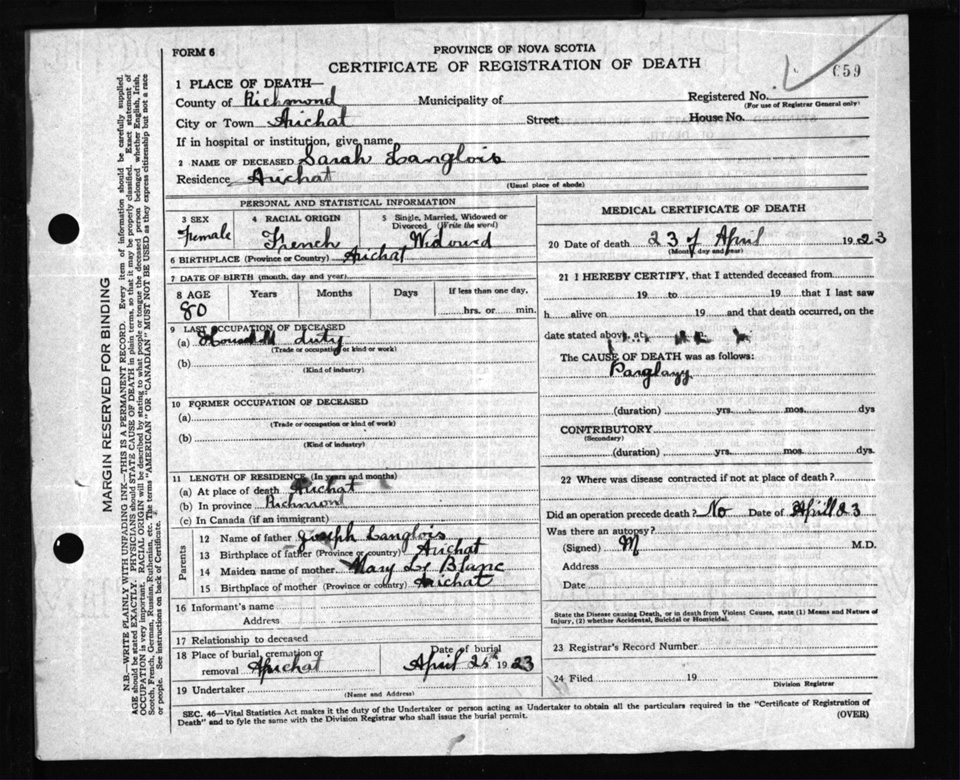 FORM 6
PROVINCE OF NOVA SCOTIA
CERTIFICATE OF REGISTRATION OF DEATH
659
1 PLACE OF DEATH—
County of Richmond Municipality of
Registered No.
(For use of Registrar General only)
City or Town Arichat Street House No.
If in hospital or institution, give name
2 NAME OF DECEASED Sarah Langlois
Residence Arichat
(Usual place of abode)
PERSONAL AND STATISTICAL INFORMATION
3 SEX 4 RACIAL ORIGIN 5 Single, Married, Widowed or Divorced (Write the word)
Female French Widowed
6 BIRTHPLACE (Province or Country) Arichat
7 DATE OF BIRTH (month, day and year)
8 AGE Years Months Days If less than one day,
80 hrs. or min.
9 LAST OCCUPATION OF DECEASED
(a) Household duty
(Trade or occupation or kind of work)
(b)
(Kind of industry)
10 FORMER OCCUPATION OF DECEASED
(a)
(Trade or occupation or kind of work)
(b)
(Kind of industry)
11 LENGTH OF RESIDENCE (In years and months)
(a) At place of death Arichat
(b) In province Richmond
(c) In Canada (if an immigrant)
Parents
12 Name of father Joseph Langlois
13 Birthplace of father (Province or country) Arichat
14 Maiden name of mother Mary Le Blanc
15 Birthplace of mother (Province or country) Arichat
16 Informant's name
Address
17 Relationship to deceased
18 Place of burial, cremation or removal Arichat
Date of burial
April 25th 1923
19 Undertaker
(Name and Address)
MEDICAL CERTIFICATE OF DEATH
20 Date of death 23 of April 1923
(Month, day and year)
21 I HEREBY CERTIFY, that I attended deceased from
19 to 19 that I last saw
h alive on 19 and that death occurred, on the
date stated above, at
The CAUSE OF DEATH was as follows:
(duration) yrs. mos. dys
CONTRIBUTORY
(Secondary)
(duration) yrs. mos. dys.
22 Where was disease contracted if not at place of death?
Did an operation precede death? No Date of April 23
Was there an autopsy?
(Signed) M M.D.
Address
Date
State the Disease causing Death, or in death from Violent Causes, state (1) Means and Nature of
Injury, (2) whether Accidental, Suicidal or Homicidal.
23 Registrar's Record Number
24 Filed 19
Division Registrar
SEC. 46—Vital Statistics Act makes it the duty of the Undertaker or person acting as Undertaker to obtain all the particulars required in the "Certificate of Registration of
Death" and to fyle the same with the Division Registrar who shall issue the burial permit. (OVER)
MARGIN RESERVED FOR BINDING
N.B.—WRITE PLAINLY WITH UNFADING INK—THIS IS A PERMANENT RECORD. Every item of information should be carefully supplied.
AGE should be stated EXACTLY. PHYSICIANS should STATE CAUSE OF DEATH in plain terms, so that it may be properly classified. Exact statement of
OCCUPATION is very important. RACIAL ORIGIN will be described by stating to what people or tongue the deceased person belonged whether English, Irish,
Scotch, French, German, Russian, Ruthenian, etc. The terms "AMERICAN" OR "CANADIAN" MUST NOT BE USED as they express citizenship but not a race
or people. See instructions on back of Certificate.